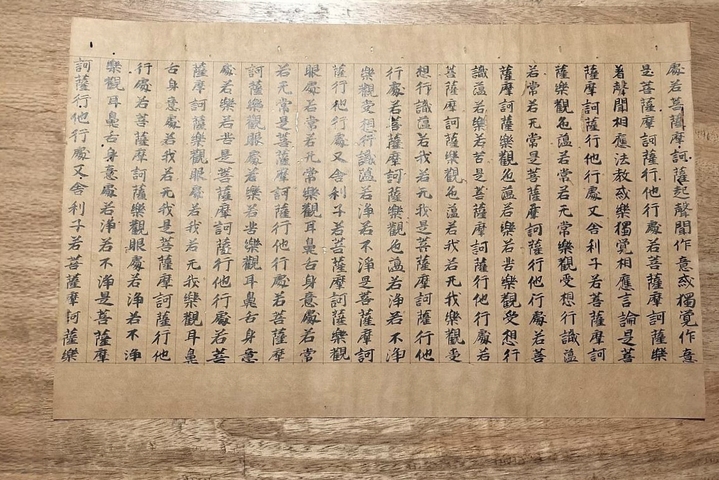 處若菩薩摩訶薩起聲聞作意或獨覺作意
是菩薩摩訶薩行他行處若菩薩摩訶薩樂
著聲聞相應法教或樂獨覺相應言論是菩
薩摩訶薩行他行處又舍利子若菩薩摩訶
薩樂觀色蘊若常若无常樂觀受想行識蘊
若常若无常是菩薩摩訶薩行他行處若菩
薩摩訶薩樂觀色蘊若樂若苦樂觀受想行
識蘊若樂若苦是菩薩摩訶薩行他行處若
菩薩摩訶薩樂觀色蘊若我若无我樂觀受
想行識蘊若我若无我是菩薩摩訶薩行他
行處若菩薩摩訶薩樂觀色蘊若淨若不淨
樂觀受想行識蘊若淨若不淨是菩薩摩訶
薩行他行處又舍利子若菩薩摩訶薩樂觀
眼處若常若无常樂觀耳鼻舌身意處若常
若无常是菩薩摩訶薩行他行處若菩薩摩
訶薩樂觀眼處若樂若苦樂觀耳鼻舌身意
處若樂若苦是菩薩摩訶薩行他行處若菩
薩摩訶薩樂觀眼處若我若无我樂觀耳鼻
舌身意處若我若无我是菩薩摩訶薩行他
行處若菩薩摩訶薩樂觀眼處若淨若不淨
樂觀耳鼻舌身意處若淨若不淨是菩薩摩
訶薩行他行處又舍利子若菩薩摩訶薩樂